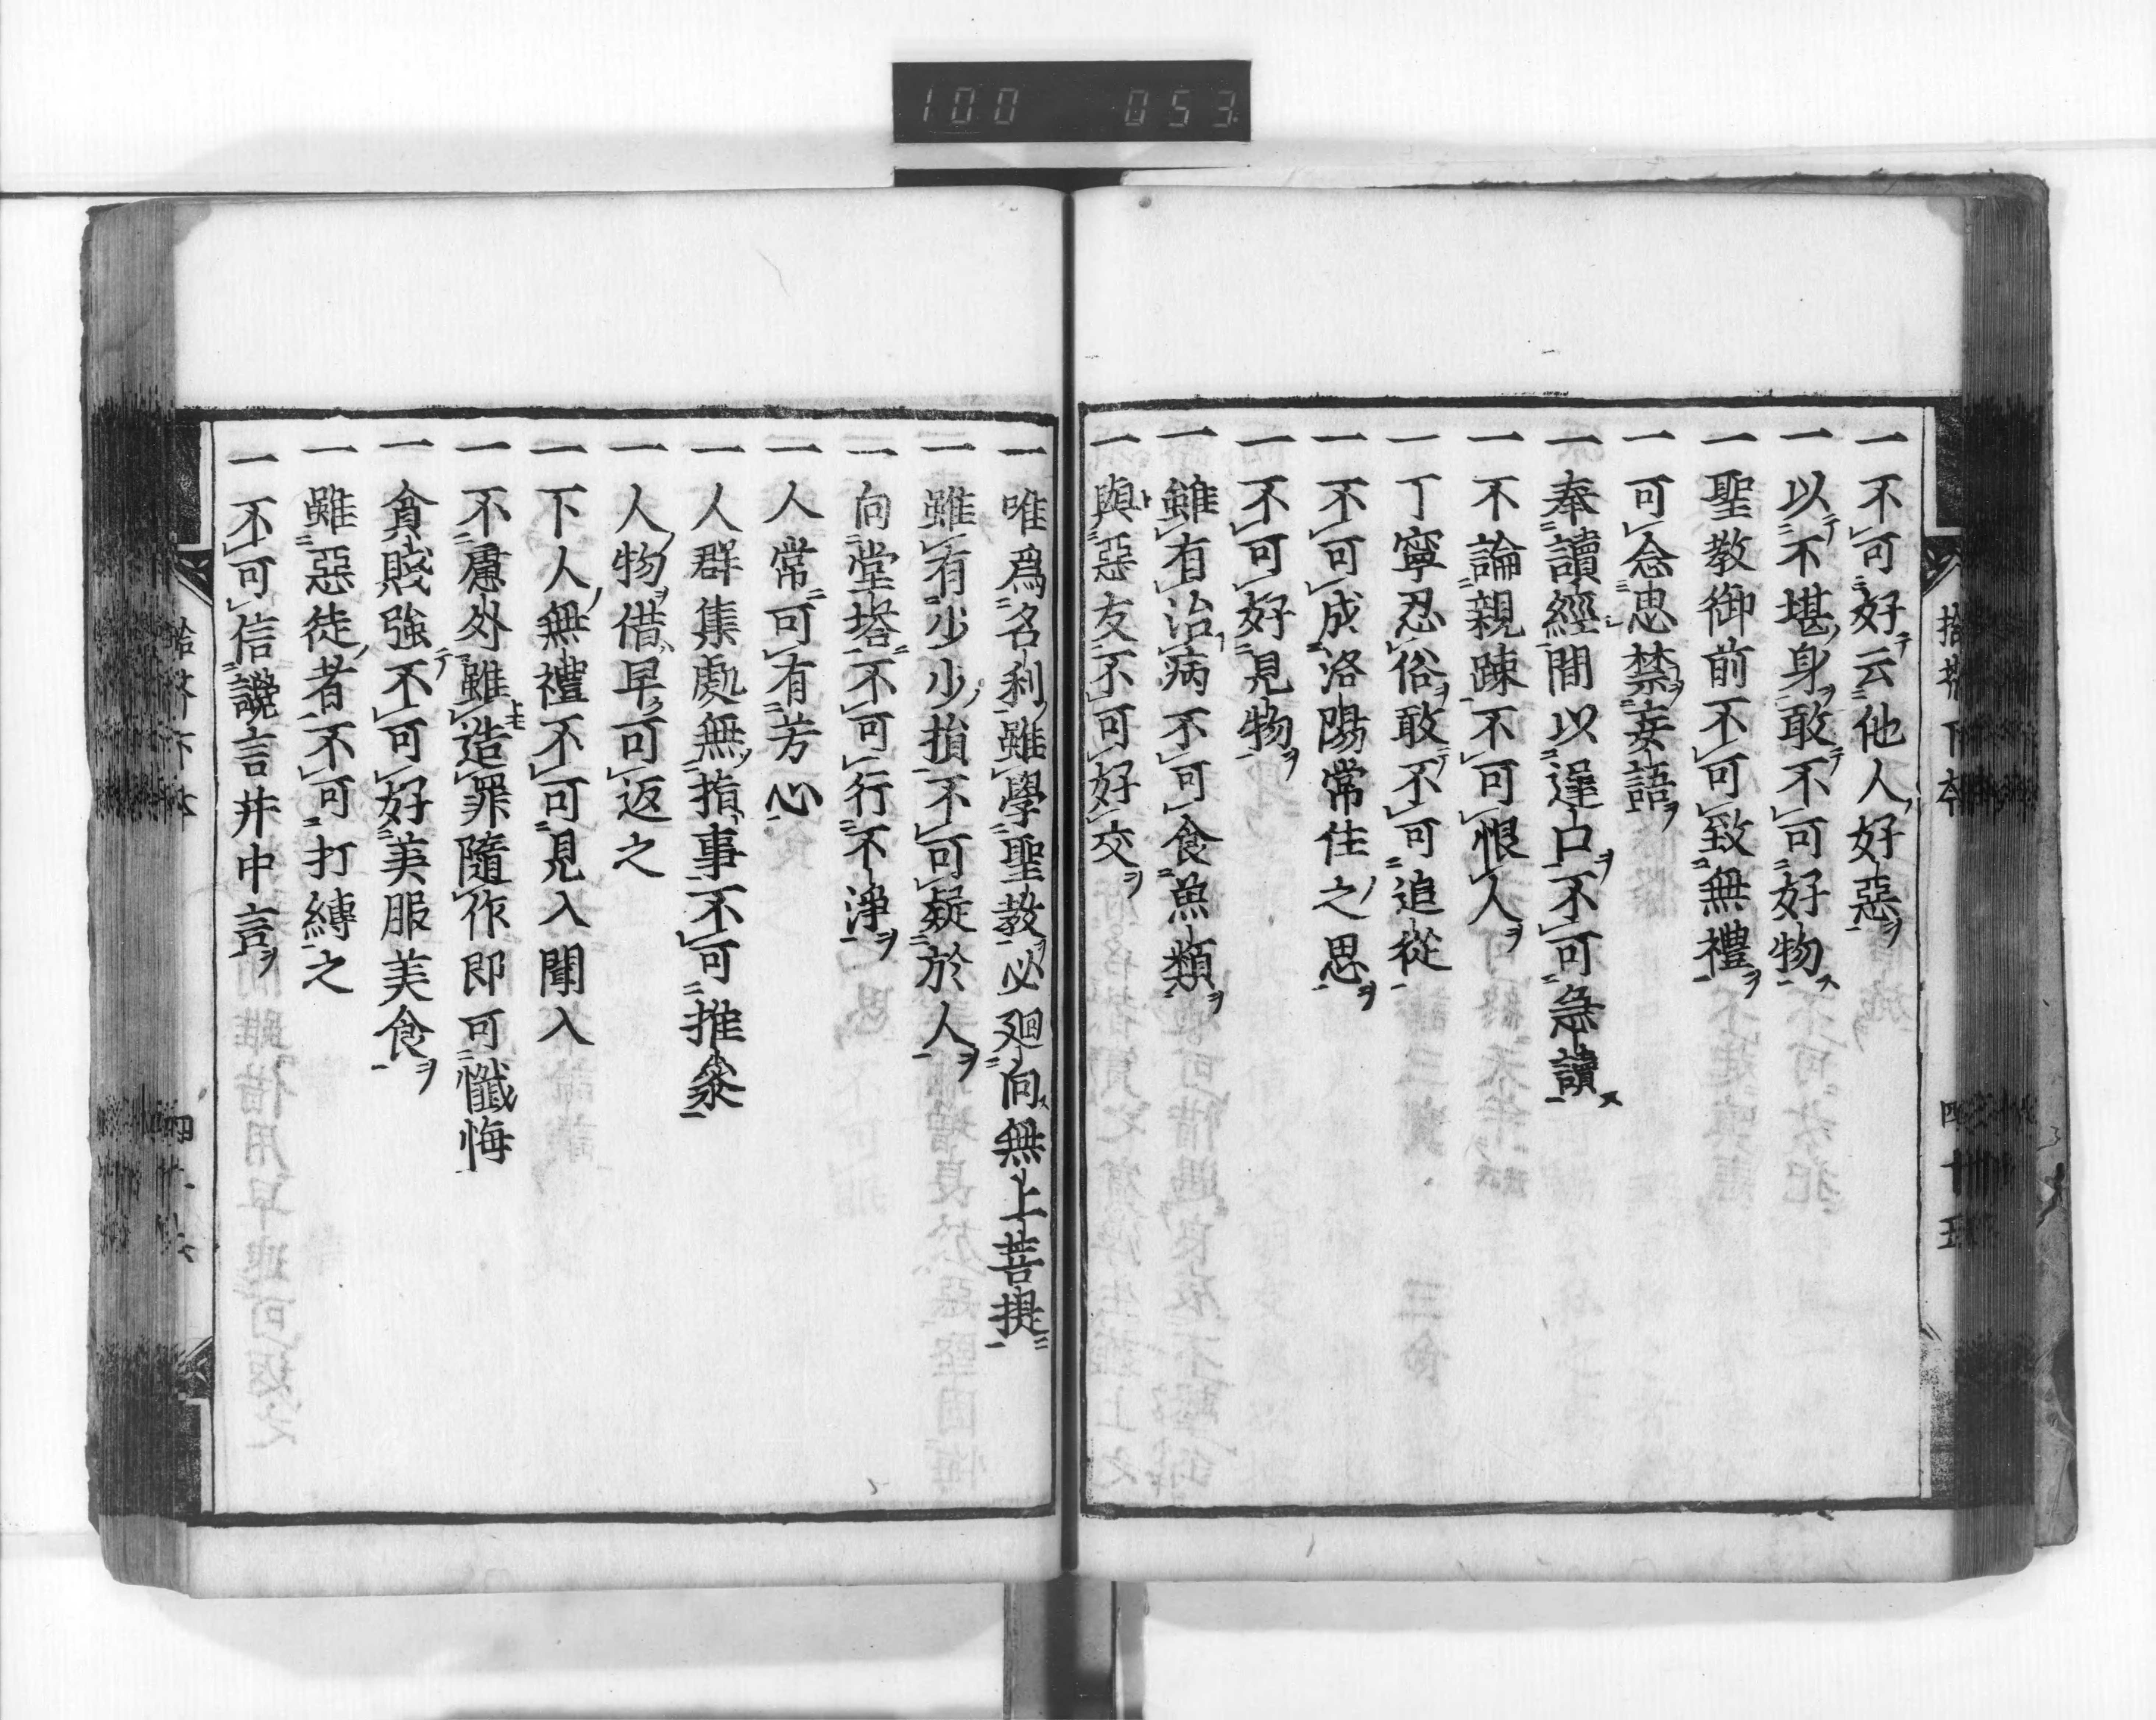 100 053
一 不可好云他人好惡
一 以不堪身敢不可好物
一 聖教御前不可致無禮
一 可念忠禁妄語
一 奉讀經間以逞口不可急讀
一 不論親疎不可恨人
一 丁寧忍俗敢不可追從
一 不可成洛陽常住之思
一 不可好見物
一 雖有治病不可食魚類
一 與惡友不可好交
一 唯爲名利雖學聖教必廻向無上菩提
一 雖有少少損不可疑於人
一 向堂塔不可行不淨
一 人常可有芳心
一 人群集處無指事不可推參
一 人物借早可返之
一 下人無禮不可見入聞入
一 不慮外雖造罪隨作即可懺悔
一 貪賤強不可好美服美食
一 雖惡徒者不可打縛之
一 不可信讒言并中言